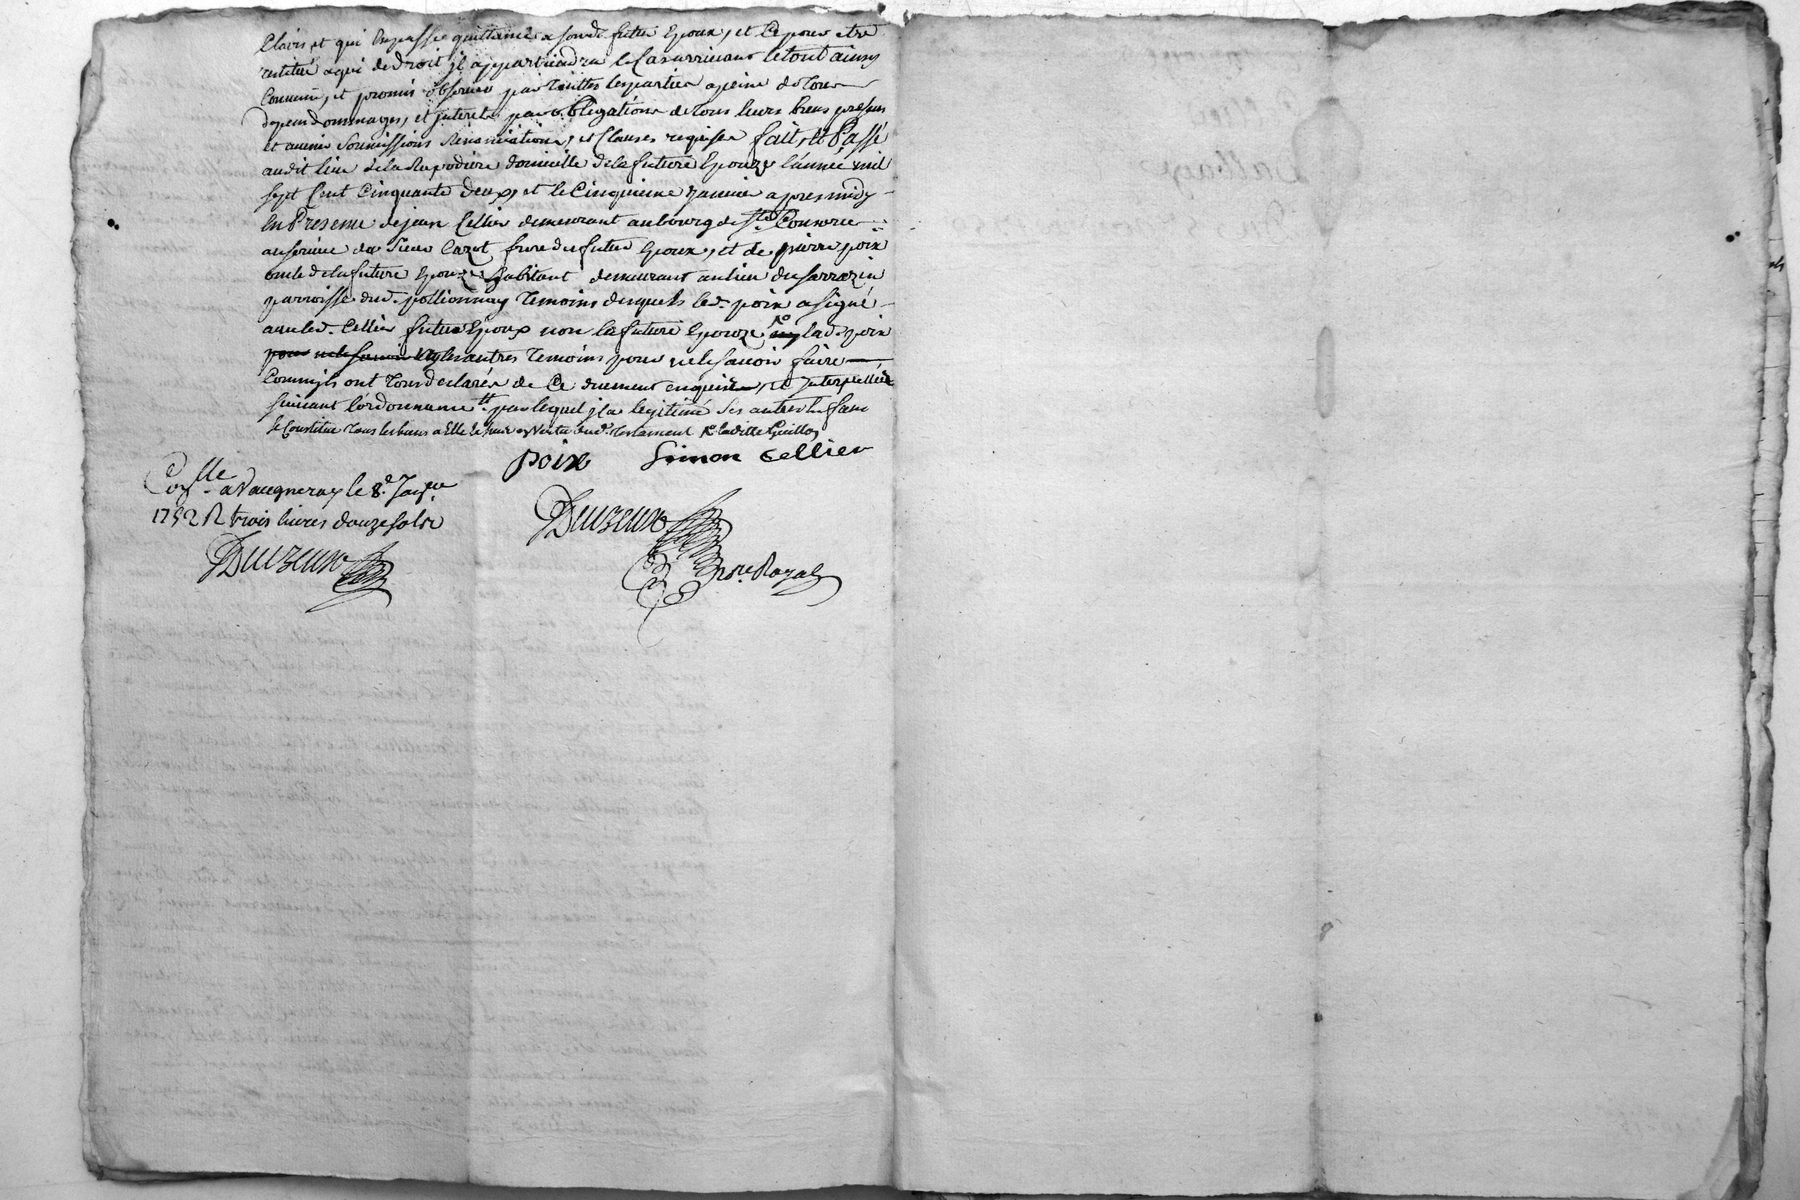 Clairs, et qui en passe quittance a sondt futur Epoux, et Ce pour etre
restitué a qui de Droit il appartiendra le Cas arrivant le tout ainsy
Convenu, et promis observer par touttes les parties a peine de tous
depens dommages, et interets par obligations de tous leurs biens presens
et avenir Soumissions Renonciations, et Clauses requises fait, et Passé
audit lieu de la Repodiere domicille de la future Epouze l'année mil
sept Cent Cinquante deux, et le Cinquieme Janvier apres midy
En Presence de jean Cellier demeurant au bourg de Ste Consorce
au service du Sieur Cazot frere du futur Epoux, et de pierre poix
oncle de la future Epouze habitant demeurant au lieu du sarrazin
parroisse dud. pollionnay Temoins desquels led. poix a signé
avec led. Cellier futur Epoux non la future Epouze, ny lad. poix
pour ne le savoir ny les autres Temoins pour ne le savoir faire
Comm'ils ont tous declarés de Ce duement enquis, et Interpellés
suivant l'ordonnance par lequel il a legitimé ses autres Enfans
se Constitue tous les biens a Elle en vertu dud. testament R. laditte Guillon
poix Simon Cellier
Conlle a Vaugneray le 8e Janv.
1752 R trois livres douze sols
Deuzeux
Deuzeux
nore Royal